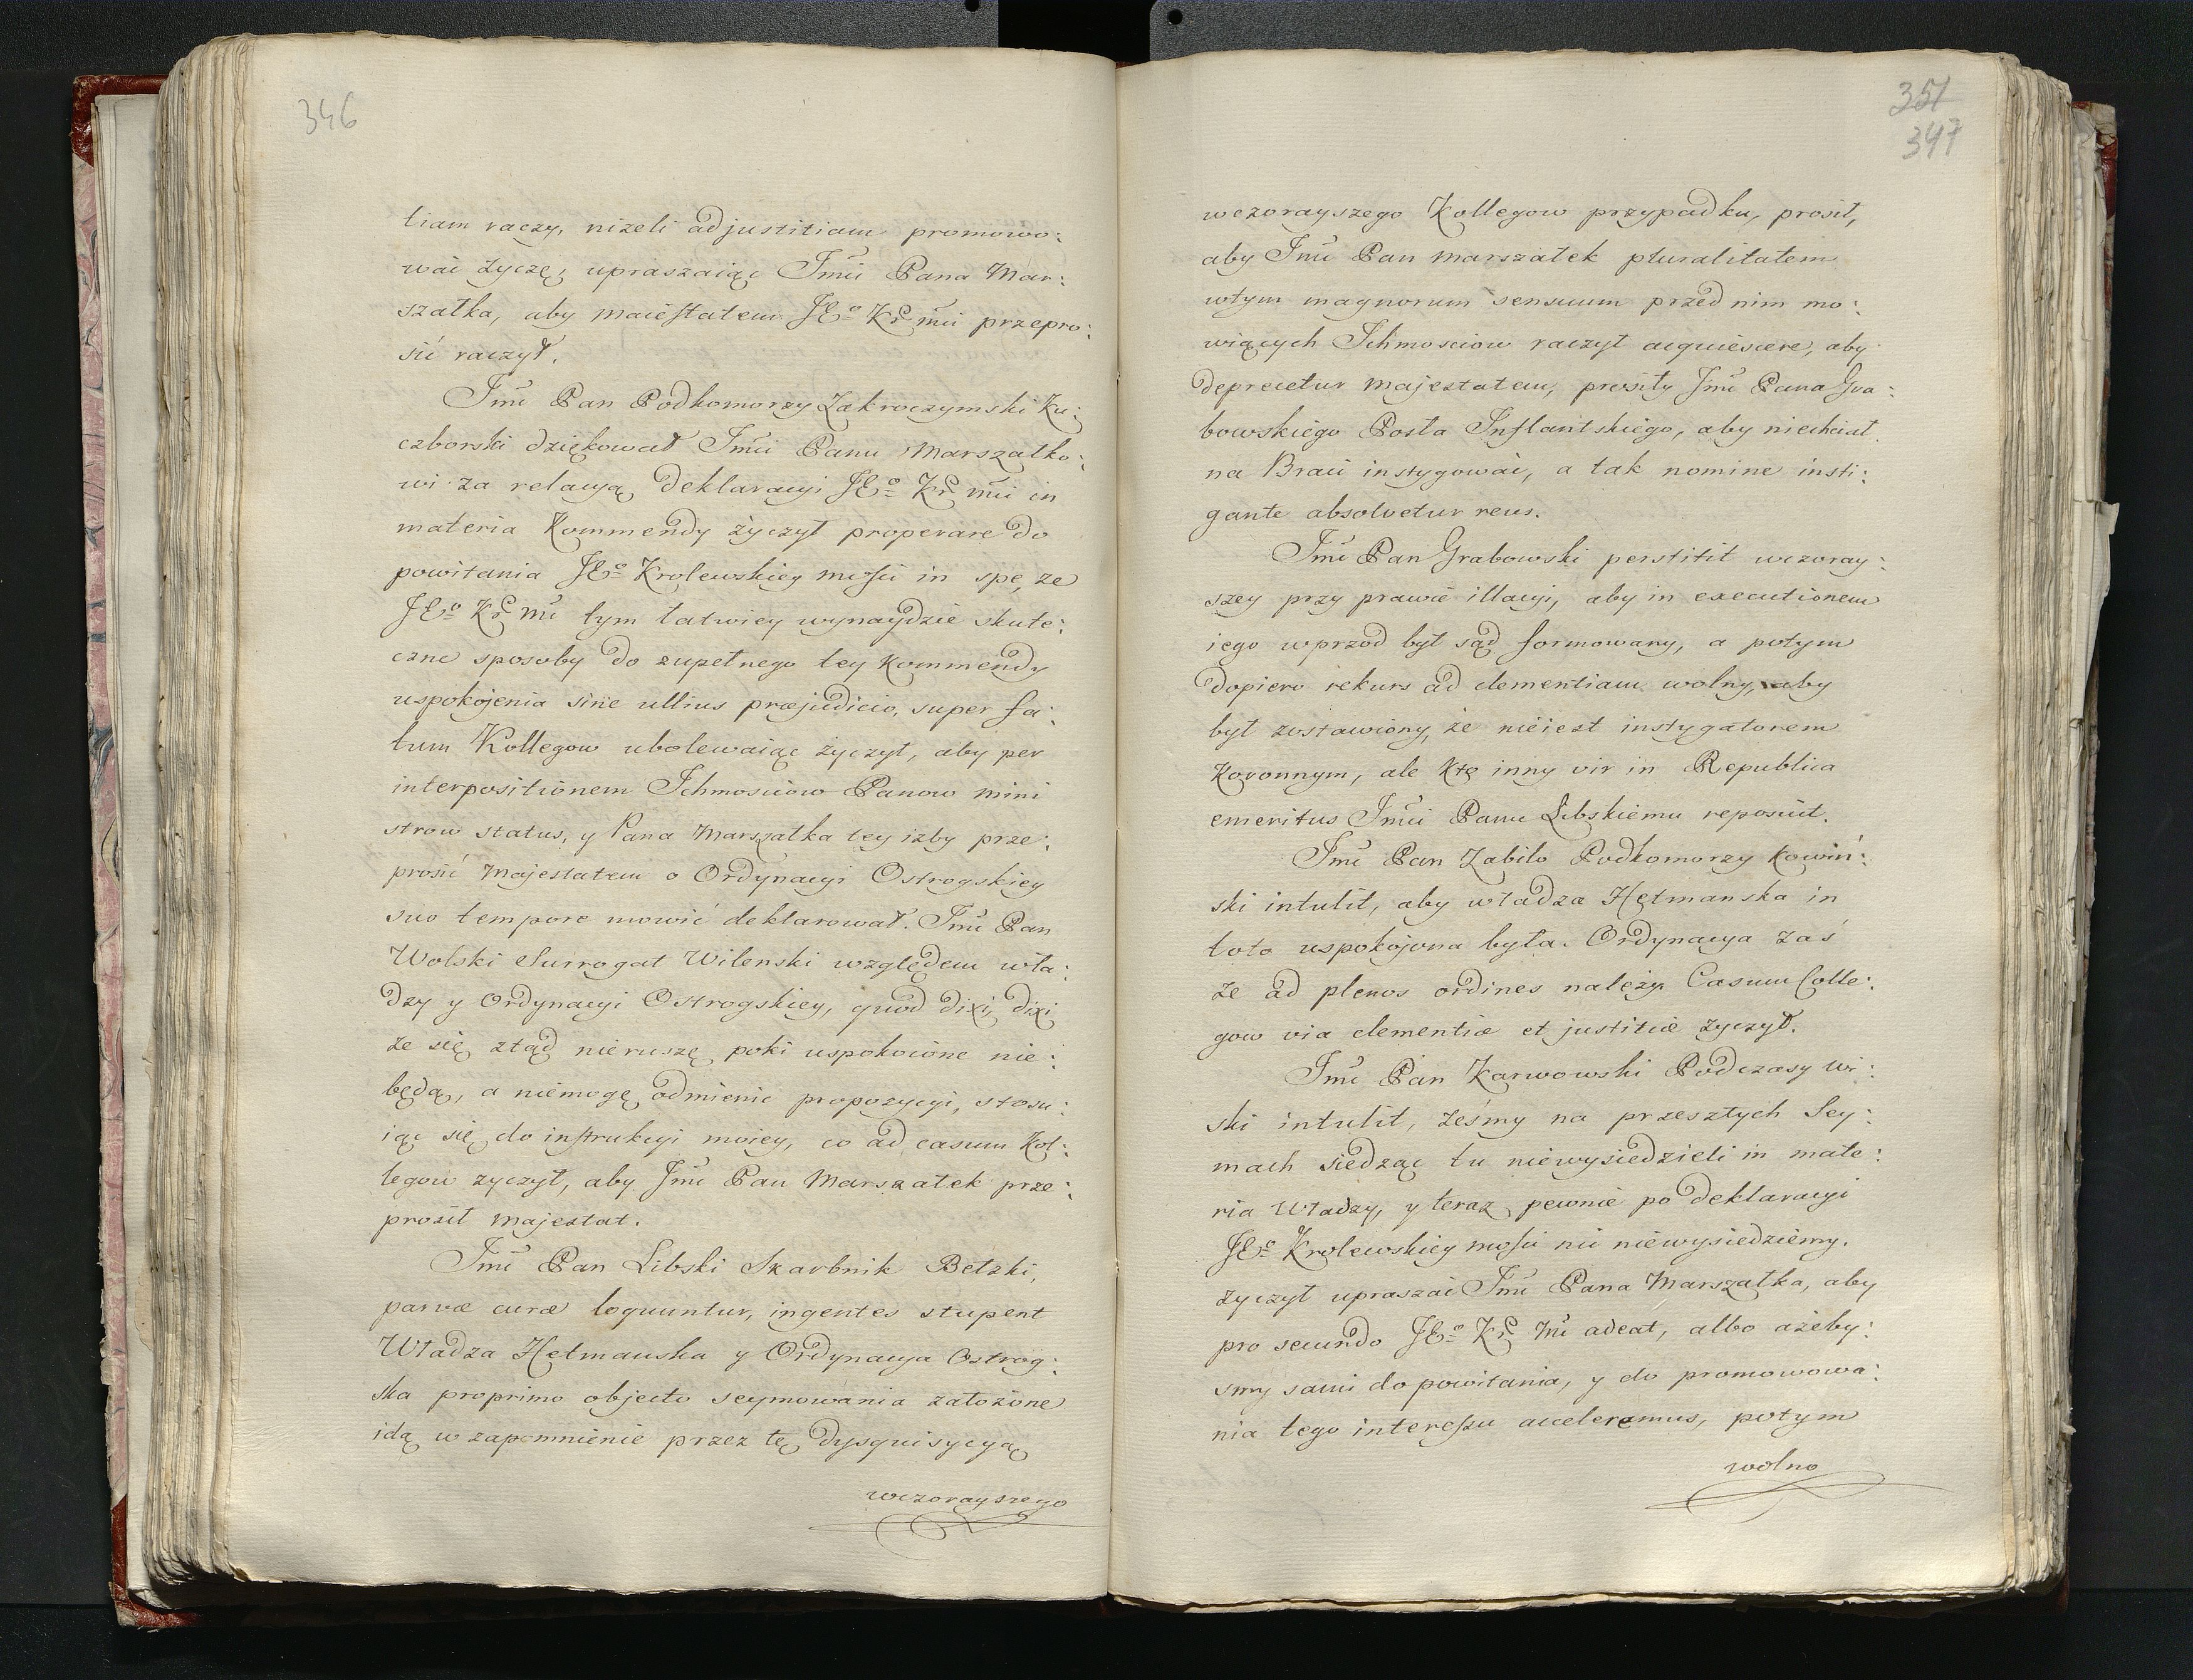 346
tiam raczy, niżeli ad justitiam promowo:
wać życzę, upraszaiąc Jmci Pana Mar:
szałka, aby maiestatem JEo Kr mci przepro:
sić raczył.
Jmć Pan Podkomorzy Zakroczymski Ku:
czborski dziękował Jmci Panu Marszałko:
wi za relacyą deklaracyi JEo Kr mci in
materia Kommendy życzył properare do
powitania JEo Krolewskiey mości in spe, że
JEo Kr mć tym łatwiey wynaydzie skute:
czne sposoby do zupełnego tey Kommendy
uspokojenia sine ullius præjudicio, super fa:
tum Kollegow ubolewaiąc życzył, aby per
interpositionem Ichmościow Panow mini
strow status, y Pana Marszałka tey izby prze:
prosić Majestatem o Ordynacyi Ostrogskiey
suo tempore mowić deklarował. Jmć Pan
Wolski Surrogat Wilenski względem wła:
dzy y Ordynacyi Ostrogskiey, quod dixi, dixi
że się ztąd nieruszę poki uspokoione nie:
będą, a niemogę odmienic propozycyi, stosu:
iąc się do instrukcyi moiey, co ad casum Kol:
legow życzył, aby Jmć Pan Marszałek prze:
prosił majestat.
Jmć Pan Libski Skarbnik Bełzki,
parvæ curæ loquuntur, ingentes stupent
Władza Hetmanska y Ordynacya Ostrog:
ska pro primo objecto seymowania założone
idą w zapomnienie przez tę dysquisycyą
wczorayszego
351
347
wczorayszego Kollegow przypadku, prosił,
aby Jmć Pan Marszałek pluralitatem
w tym magnorum sensuum przed nim mo:
wiących Ichmościow raczył acquiescere, aby
deprecetur majestatem, prosiły Jmć Pana Gra:
bowskiego Posła Inflantskiego, aby niechciał
na Braci instygować, a tak nomine insti:
gante absolvetur reus.
Jmć Pan Grabowski perstitit wczoray:
szey przy prawie illacyi, aby in executionem
iego wprzod był sąd formowany, a potym
dopiero rekurs ad clementiam wolny, aby
był zostawiony, że nieiest instygatorem
Koronnym, ale kto inny vir in Republica
emeritus Jmci Panu Libskiemu reposuit.
Jmć Pan Zabiło Podkomorzy Kowiń:
ski intulit, aby władza Hetmanska in
toto uspokojona była. Ordynacya zaś
że ad plenos ordines należy. Casum Colle:
gow via clementiæ et justitiæ życzył.
Jmć Pan Karwowski Podczaszy Wi:
ski intulit, żeśmy na przeszłych Sey:
mach siedząc tu niewysiedzieli in mate:
ria Władzy, y teraz pewnie po deklaracyi
JEo Krolewskiey mości nic niewysiedziemy.
życzył upraszać Jmć Pana Marszałka, aby
pro secundo JEo Kr Mć adeat, albo ażeby:
smy sami do powitania, y do promowowa:
nia tego interessu acceleremus, potym
wolno